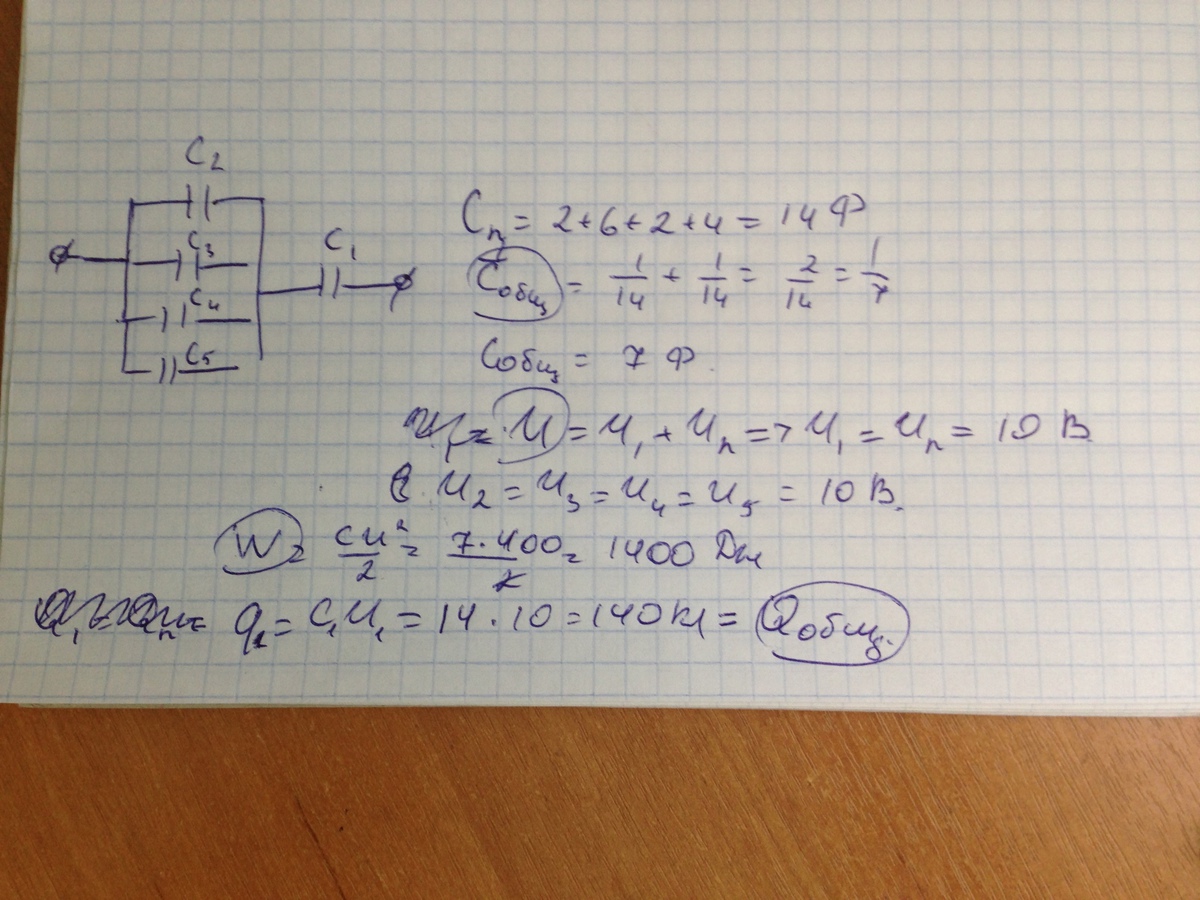 C2
C3
C1
C4
C5
Cп = 2+6+2+4 = 14 Ф
Cобщ = 1/14 + 1/14 = 2/14 = 1/7
Cобщ = 7 Ф.
U = U1 + Uп => U1 = Uп = 10 В.
U2 = U3 = U4 = U5 = 10 В.
W = CU²/2 = 7·400/2 = 1400 Дж
q1 = C1U1 = 14·10 = 140 Кл = Qобщ.